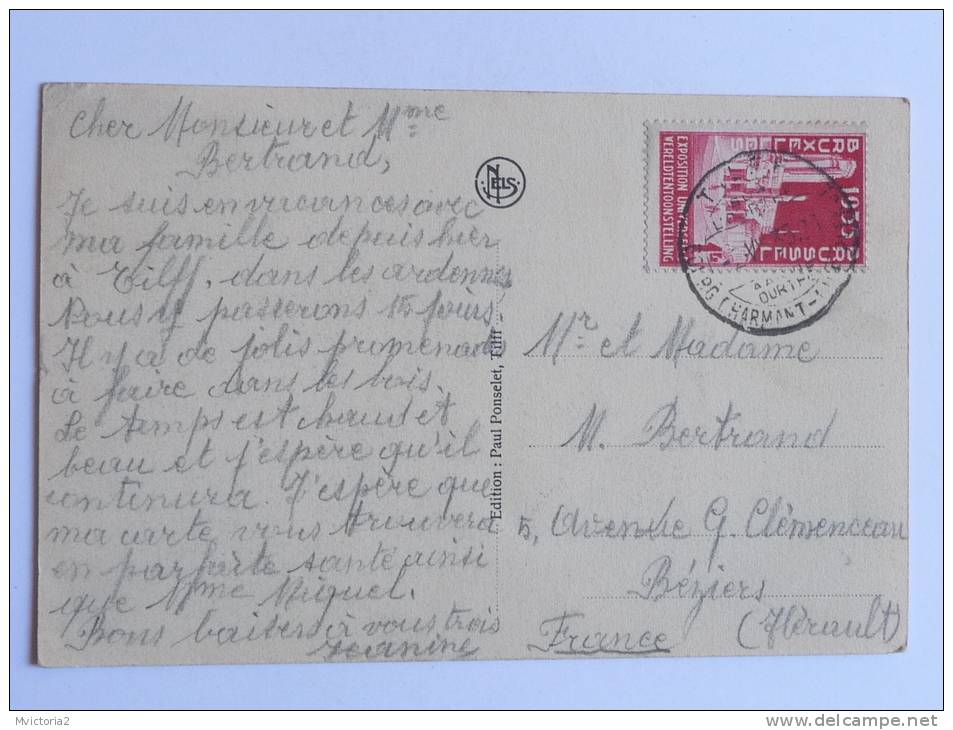 Cher Monsieur et Mme
Bertrand,
Je suis en vacances avec
ma famille depuis hier
à Tilff, dans les ardennes
Nous y passerons 15 jours
Il y a de jolis promenades
à faire dans les bois.
Le temps est chaud et
beau et j'espère qu'il
continura. J'espère que
ma carte vous trouvera
en parfaite santé ainsi
que Mme Miquel.
Bons baisers à vous trois
Jeanine
NELS
Edition : Paul Ponselet, Tilff
BRUXELLES 1935 BRUSSEL
EXPOSITION UNIVERSELLE
WERELDTENTOONSTELLING
TILFF
OURTHE
CHARMANT
Mr et Madame
M. Bertrand
5, Avenue G. Clémenceau
Béziers
(Hérault)
France
Mvictoria2
www.delcampe.net